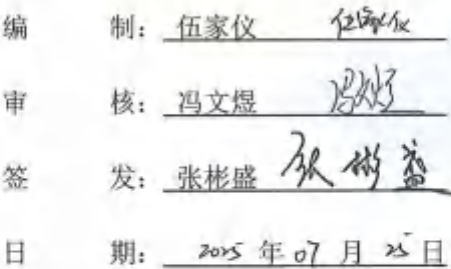 编 制： 伍家仪 伍家仪
审 核： 冯文煜 冯文煜
签 发： 张彬盛 张彬盛
日 期： 2025 年 07 月 25 日